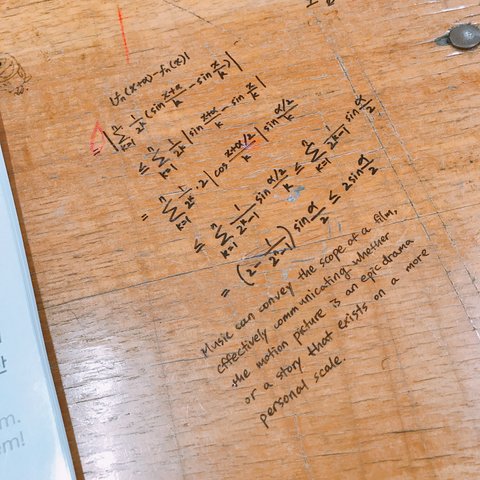 |fₙ(x+α)-fₙ(x)|
= |∑_{k=1}^{n} 1/2^k (sin (x+α)/k - sin x/k)|
≤ ∑_{k=1}^{n} 1/2^k |sin (x+α)/k - sin x/k|
= ∑_{k=1}^{n} 1/2^k · 2|cos (x+α/2)/k| sin (α/2)/k
≤ ∑_{k=1}^{n} 1/2^{k-1} sin (α/2)/k ≤ ∑_{k=1}^{n} 1/2^{k-1} sin α/2
= (2 - 1/2^{n-1}) sin α/2 ≤ 2 sin α/2
Music can convey the scope of a film,
effectively communicating whether
the motion picture is an epic drama
or a story that exists on a more
personal scale.